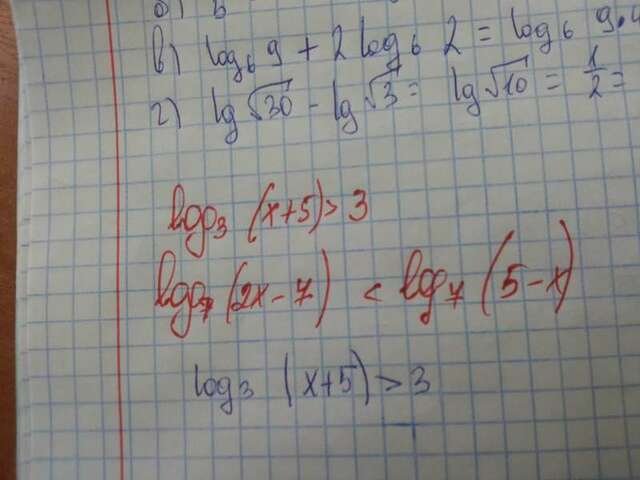 в) log₆ 9 + 2 log₆ 2 = log₆ 9·
г) lg √30 - lg √3 = lg √10 = 1/2 =
log₃ (x+5) > 3
log₇ (2x-7) < log₇ (5-x)
log₃ (x+5) > 3